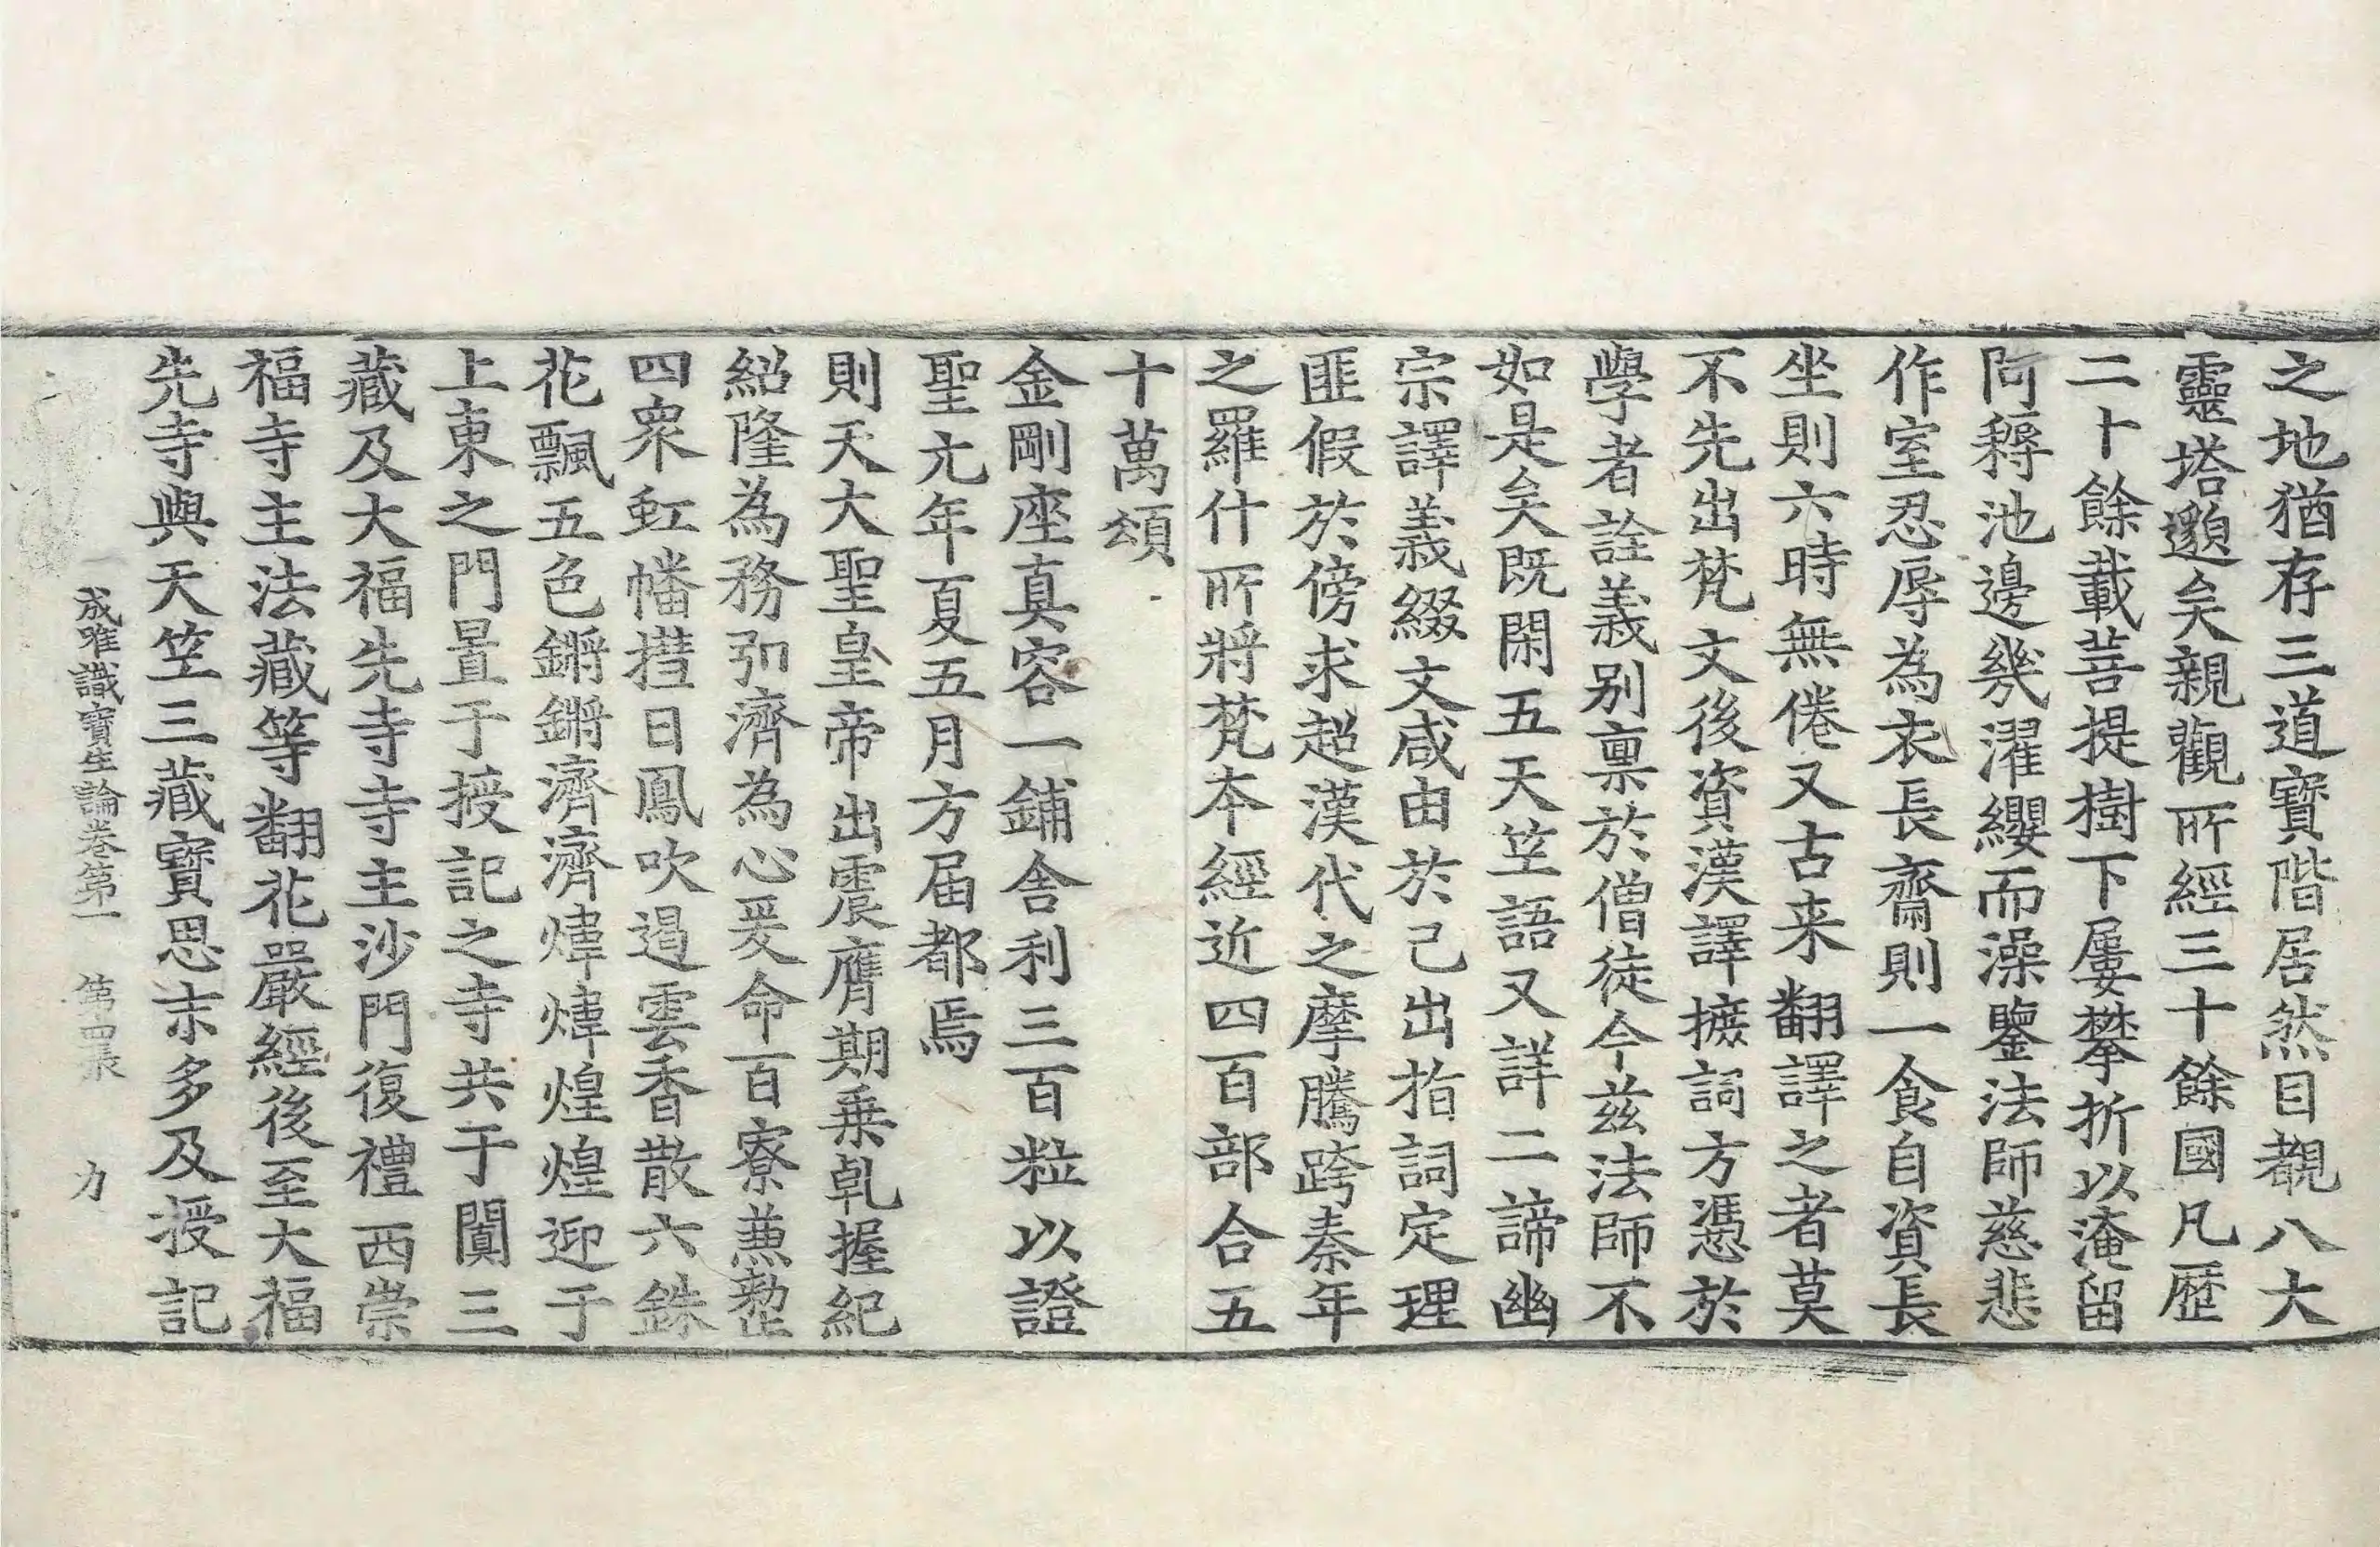 之地猶存三道寶階居然目覩八大
靈塔邈矣親觀所經三十餘國凡歷
二十餘載菩提樹下屢攀折以淹留
阿耨池邊幾濯纓而澡鑒法師慈悲
作室忍辱為衣長齋則一食自資長
坐則六時無倦又古来翻譯之者莫
不先出梵文後資漢譯摭詞方憑於
學者詮義别稟於僧徒今茲法師不
如是矣既閑五天笁語又詳二諦幽
宗譯義綴文咸由於己出指詞定理
匪假於傍求超漢代之摩騰跨秦年
之羅什所將梵本經近四百部合五
十萬頌
金剛座真容一鋪舍利三百粒以證
聖元年夏五月方届都焉
則天大聖皇帝出震膺期乗乹握紀
紹隆為務弘濟為心爰命百寮兼整
四衆虹幡㨗日鳳吹遏雲香散六銖
花飄五色鏘鏘濟濟煒煒煌煌迎于
上東之門置于授記之寺共于闐三
藏及大福先寺寺主沙門復禮西崇
福寺主法藏等翻花嚴經後至大福
先寺與天笁三藏寶思末多及授記
成唯識寶生論卷第一 第四張 力